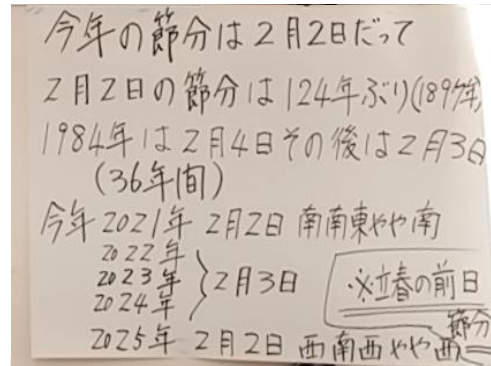 今年の節分は2月2日だって
2月2日の節分は124年ぶり(1897年)
1984年は2月4日その後は2月3日
(36年間)
今年2021年 2月2日 南南東やや南
2022年
2023年 }2月3日
2024年
※立春の前日
節分
2025年 2月2日 西南西やや西